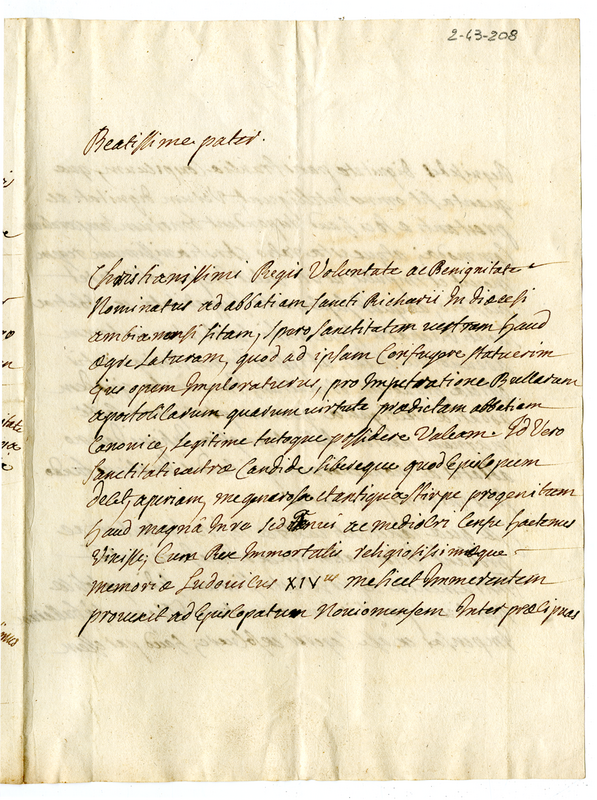 2-43-208
Beatissime pater.
Christianissimi Regis Voluntate ac Benignitate
Nominatus ad abbatiam sancti Richarii In diœcesi
ambianensi sitam, spero sanctitatem vestram haud
ægre Laturam, quod ad ipsam Confugere statuerim
Ejus opem Imploraturus, pro Impetratione Bullarum
apostolicarum quarum virtute prædictam abbatiam
Canonice, Legitime tutoque possidere Valeam. Id Vero
sanctitati vestræ Candide libereque quod Episcopum
decet, aperiam, me generosa et antiqua stirpe progenitum
haud magna In re sed Tenui ac mediocri Censu hactenus
Vixisse; Cum Rex Immortalis religiosissimæque
memoriæ Ludovicus XIVus me licet Immerentem
provexit ad Episcopatum Noviomensem Inter præcipuas